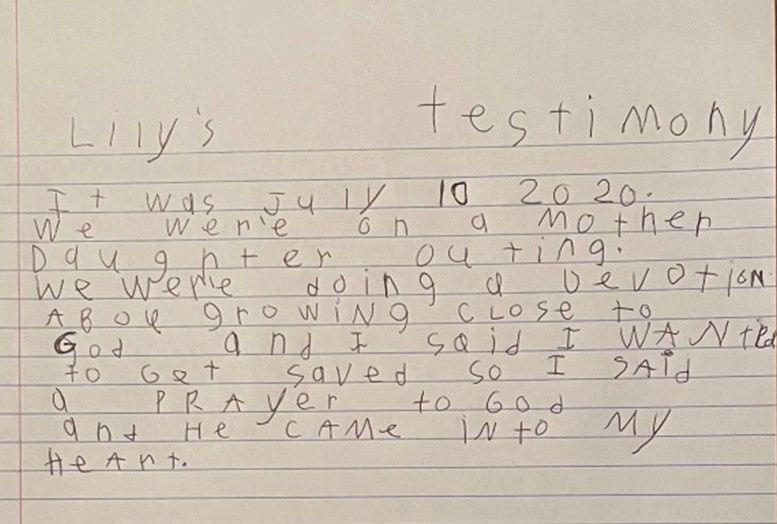 Lily's testimony
It was July 10 2020.
We were on a Mother
Daughter outing.
We were doing a Devotion
ABou growing close to
God and I said I WANted
to Get saved so I SAid
a PRAyer to God
and He CAMe iNto My
HeArt.